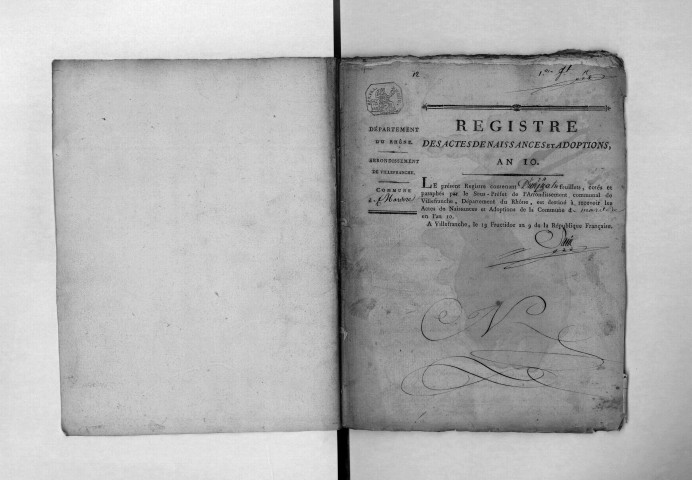 REGISTRE
DES ACTES DE NAISSANCES ET ADOPTIONS,
AN 10.
DÉPARTEMENT
DU RHÔNE.
ARRONDISSEMENT
DE VILLEFRANCHE.
COMMUNE
LE présent Registre contenant feuillets, cotés et
paraphés par le Sous-Préfet de l'Arrondissement communal de
Villefranche, Département du Rhône, est destiné à recevoir les
Actes de Naissances et Adoptions de la Commune d
en l'an 10.
A Villefranche, le 19 Fructidor an 9 de la République Française.
N